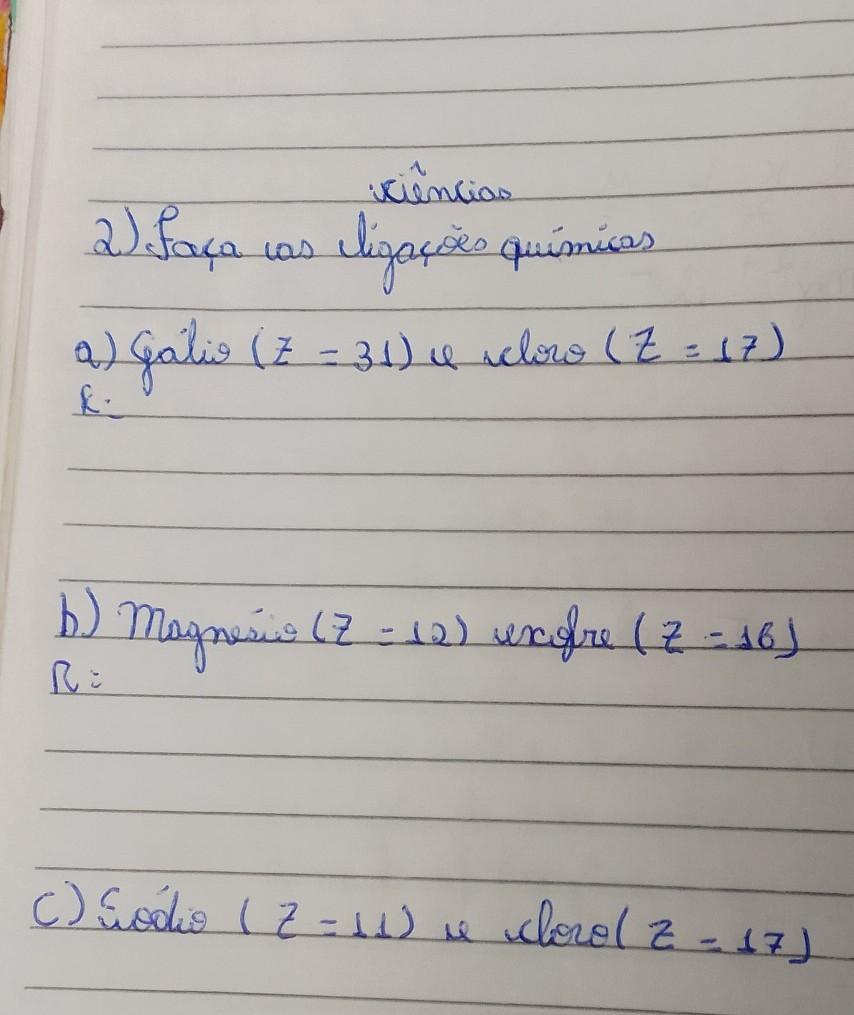 ciências
2) Faça as ligações químicas
a) Gálio (Z = 31) e cloro (Z = 17)
R:
b) Magnésio (Z = 12) enxofre (Z = 16)
R:
c) Sódio (Z = 11) e cloro (Z = 17)